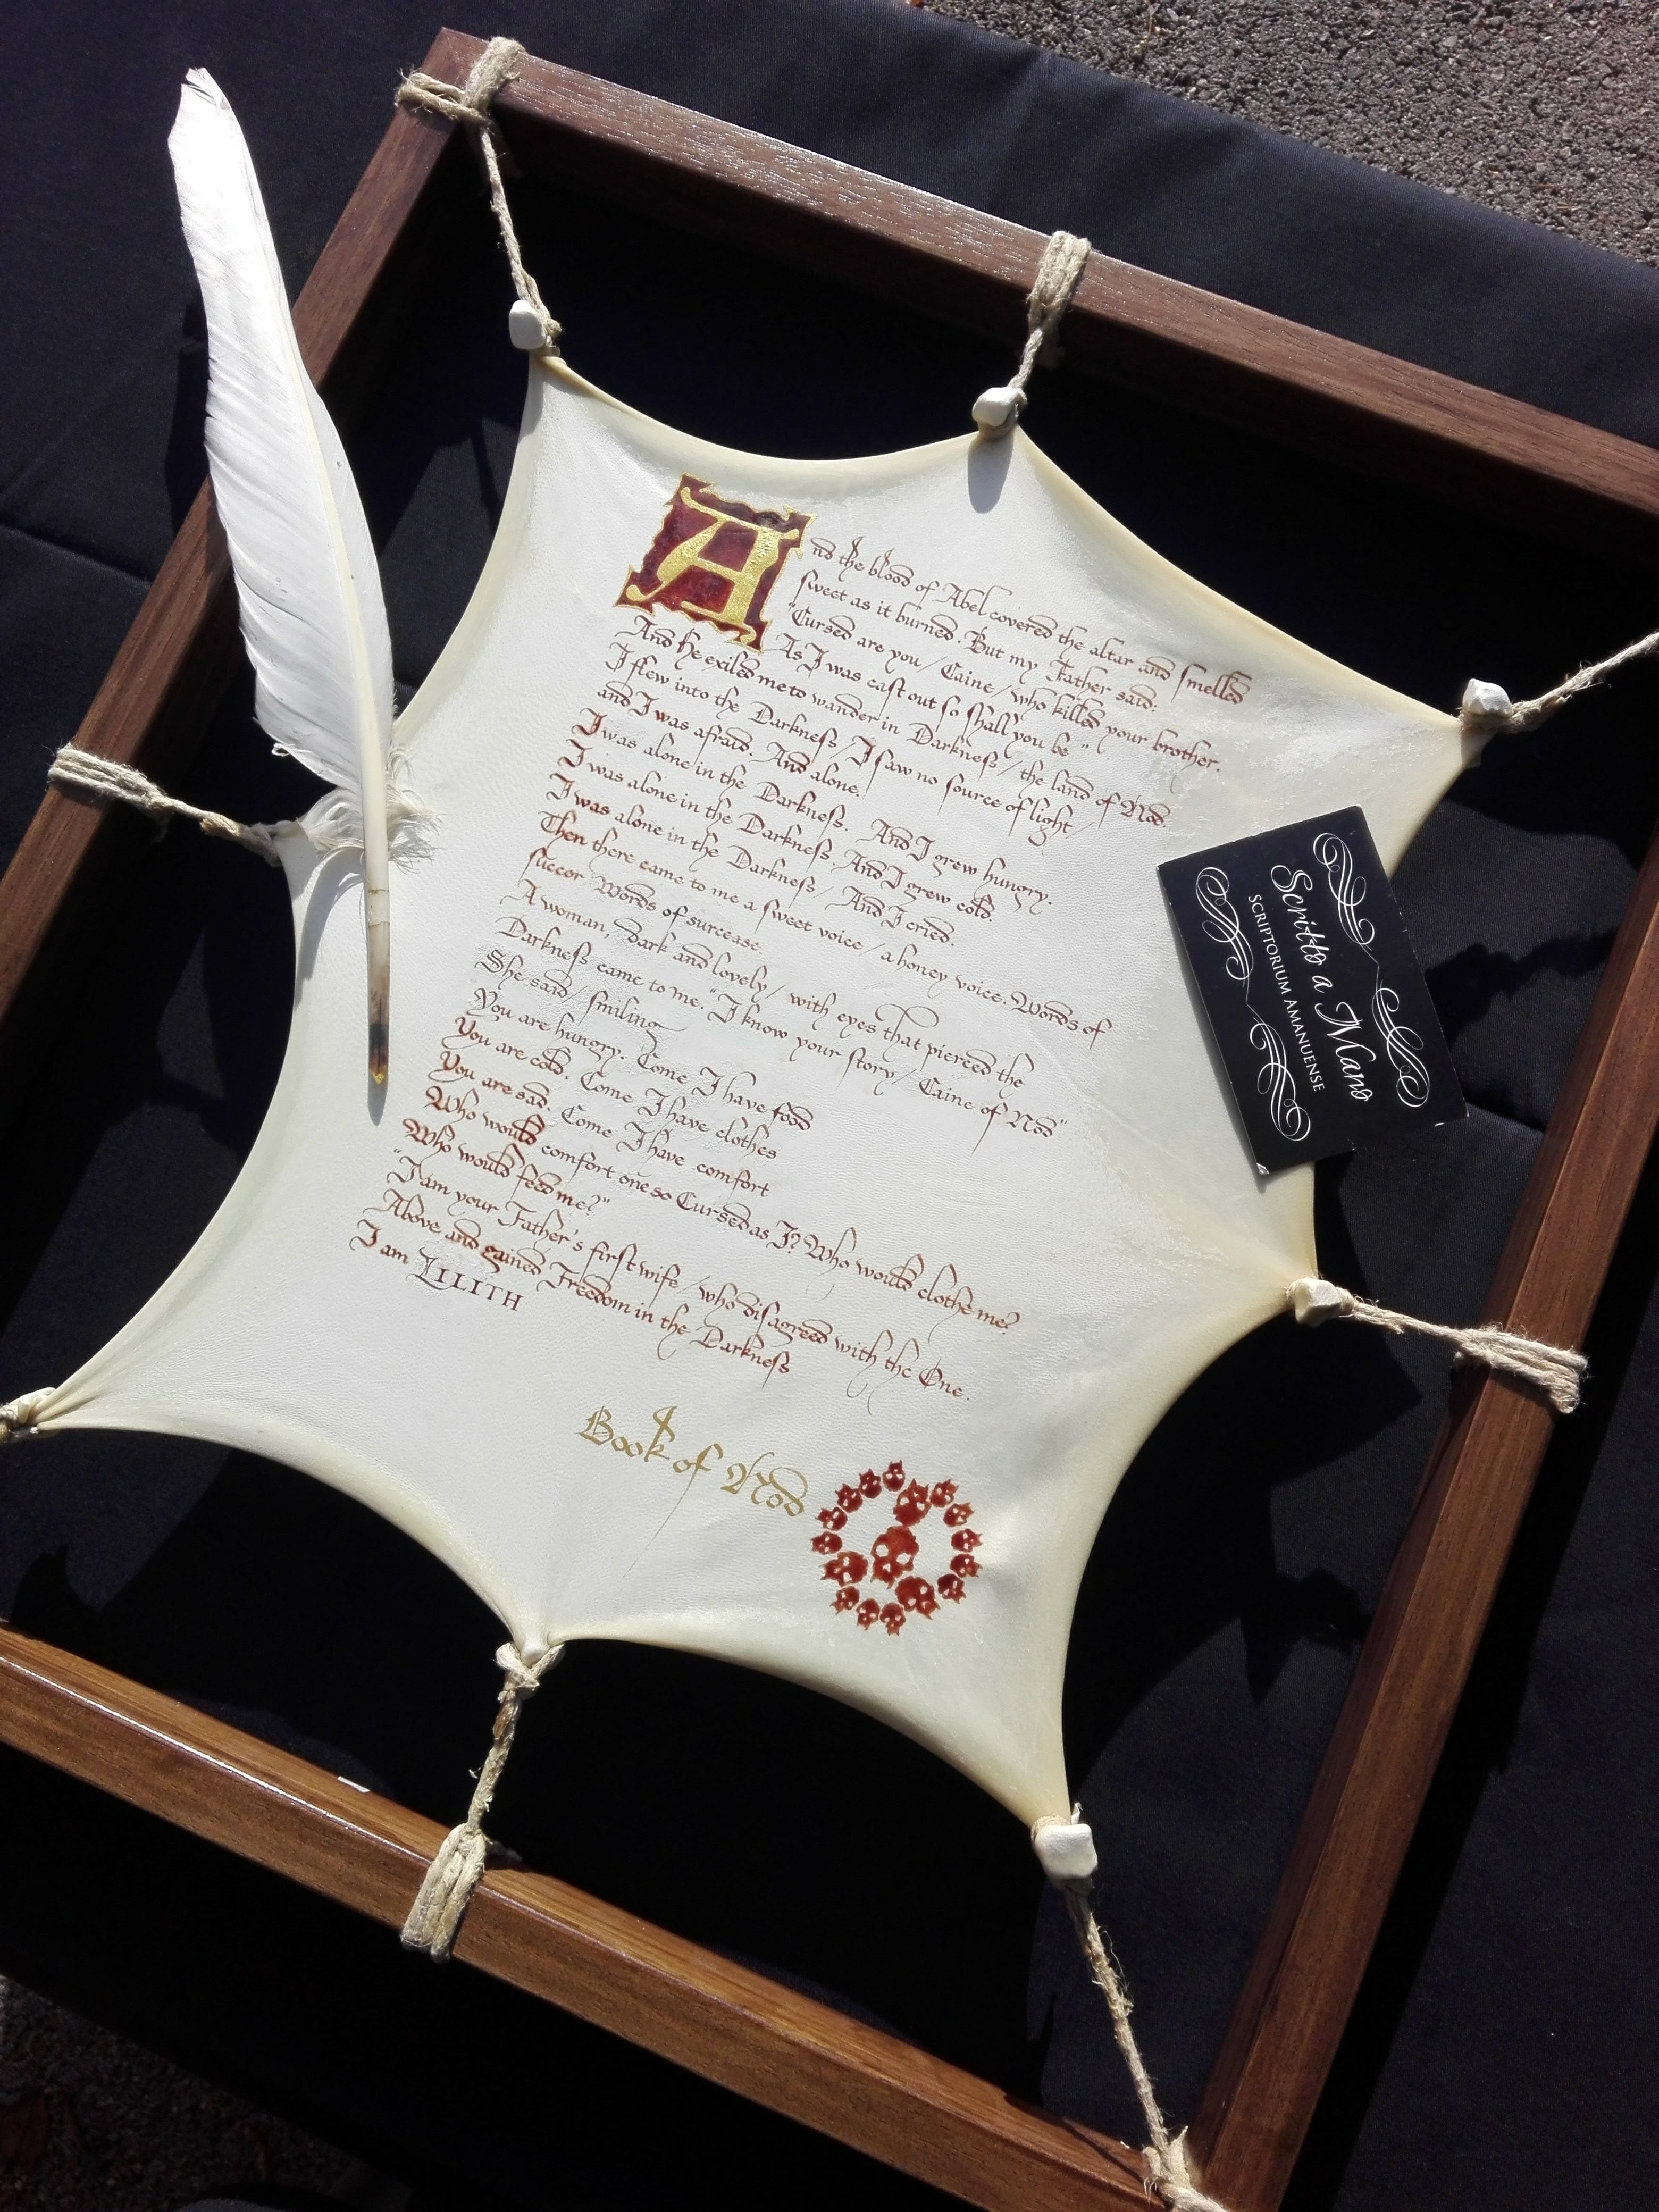 And the blood of Abel covered the altar and smelled
sweet as it burned. But my Father said:
"Cursed are you / Caine / who killed your brother.
As I was cast out so shall you be"
And he exiled me to wander in Darkness / the land of Nod.
I flew into the Darkness / I saw no source of light /
and I was afraid. And alone.
I was alone in the Darkness. And I grew hungry.
I was alone in the Darkness. And I grew cold.
I was alone in the Darkness / And I cried.
Then there came to me a sweet voice / a honey voice. Words of
succor. Words of surcease.
A woman, dark and lovely / with eyes that pierced the
Darkness came to me. "I know your story / Caine of Nod"
She said / smiling
You are hungry. Come I have food
You are cold. Come I have clothes
You are sad. Come I have comfort
Who would comfort one so Cursed as I? Who would clothe me?
Who would feed me?"
"I am your Father's first wife / who disagreed with the One
Above and gained Freedom in the Darkness
I am LILITH
Book of Nod
Scritto a Mano
SCRIPTORIUM AMANUENSE